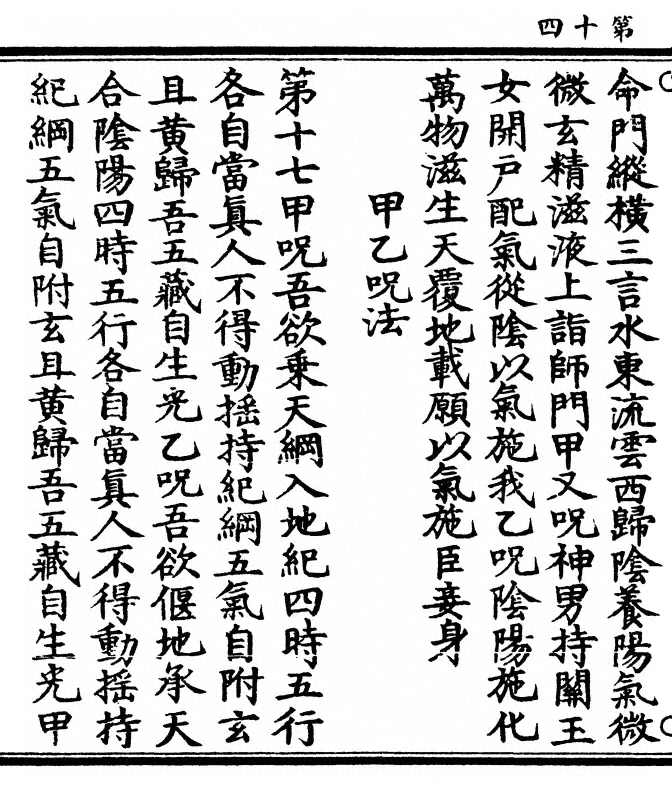 第十四
命門縱橫三言水東流雲西歸陰養陽氣微
微玄精滋液上詣師門甲又呪神男持關玉
女開戶配氣從陰以氣施我乙呪陰陽施化
萬物滋生天覆地載願以氣施臣妾身
甲乙呪法
第十七甲呪吾欲乘天綱入地紀四時五行
各自當真人不得動搖持紀綱五氣自附玄
且黄歸吾五藏自生光乙呪吾欲偃地承天
合陰陽四時五行各自當真人不得動搖持
紀綱五氣自附玄且黄歸吾五藏自生光甲